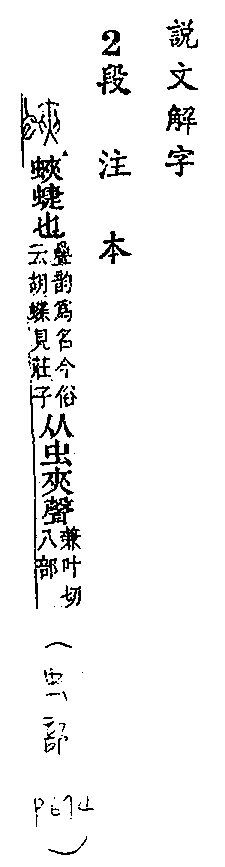 説文解字
2段注本
蛺 蛺蜨也疊韵爲名今俗云胡蝶見莊子从虫夾聲兼叶切八部
(虫部 P674)